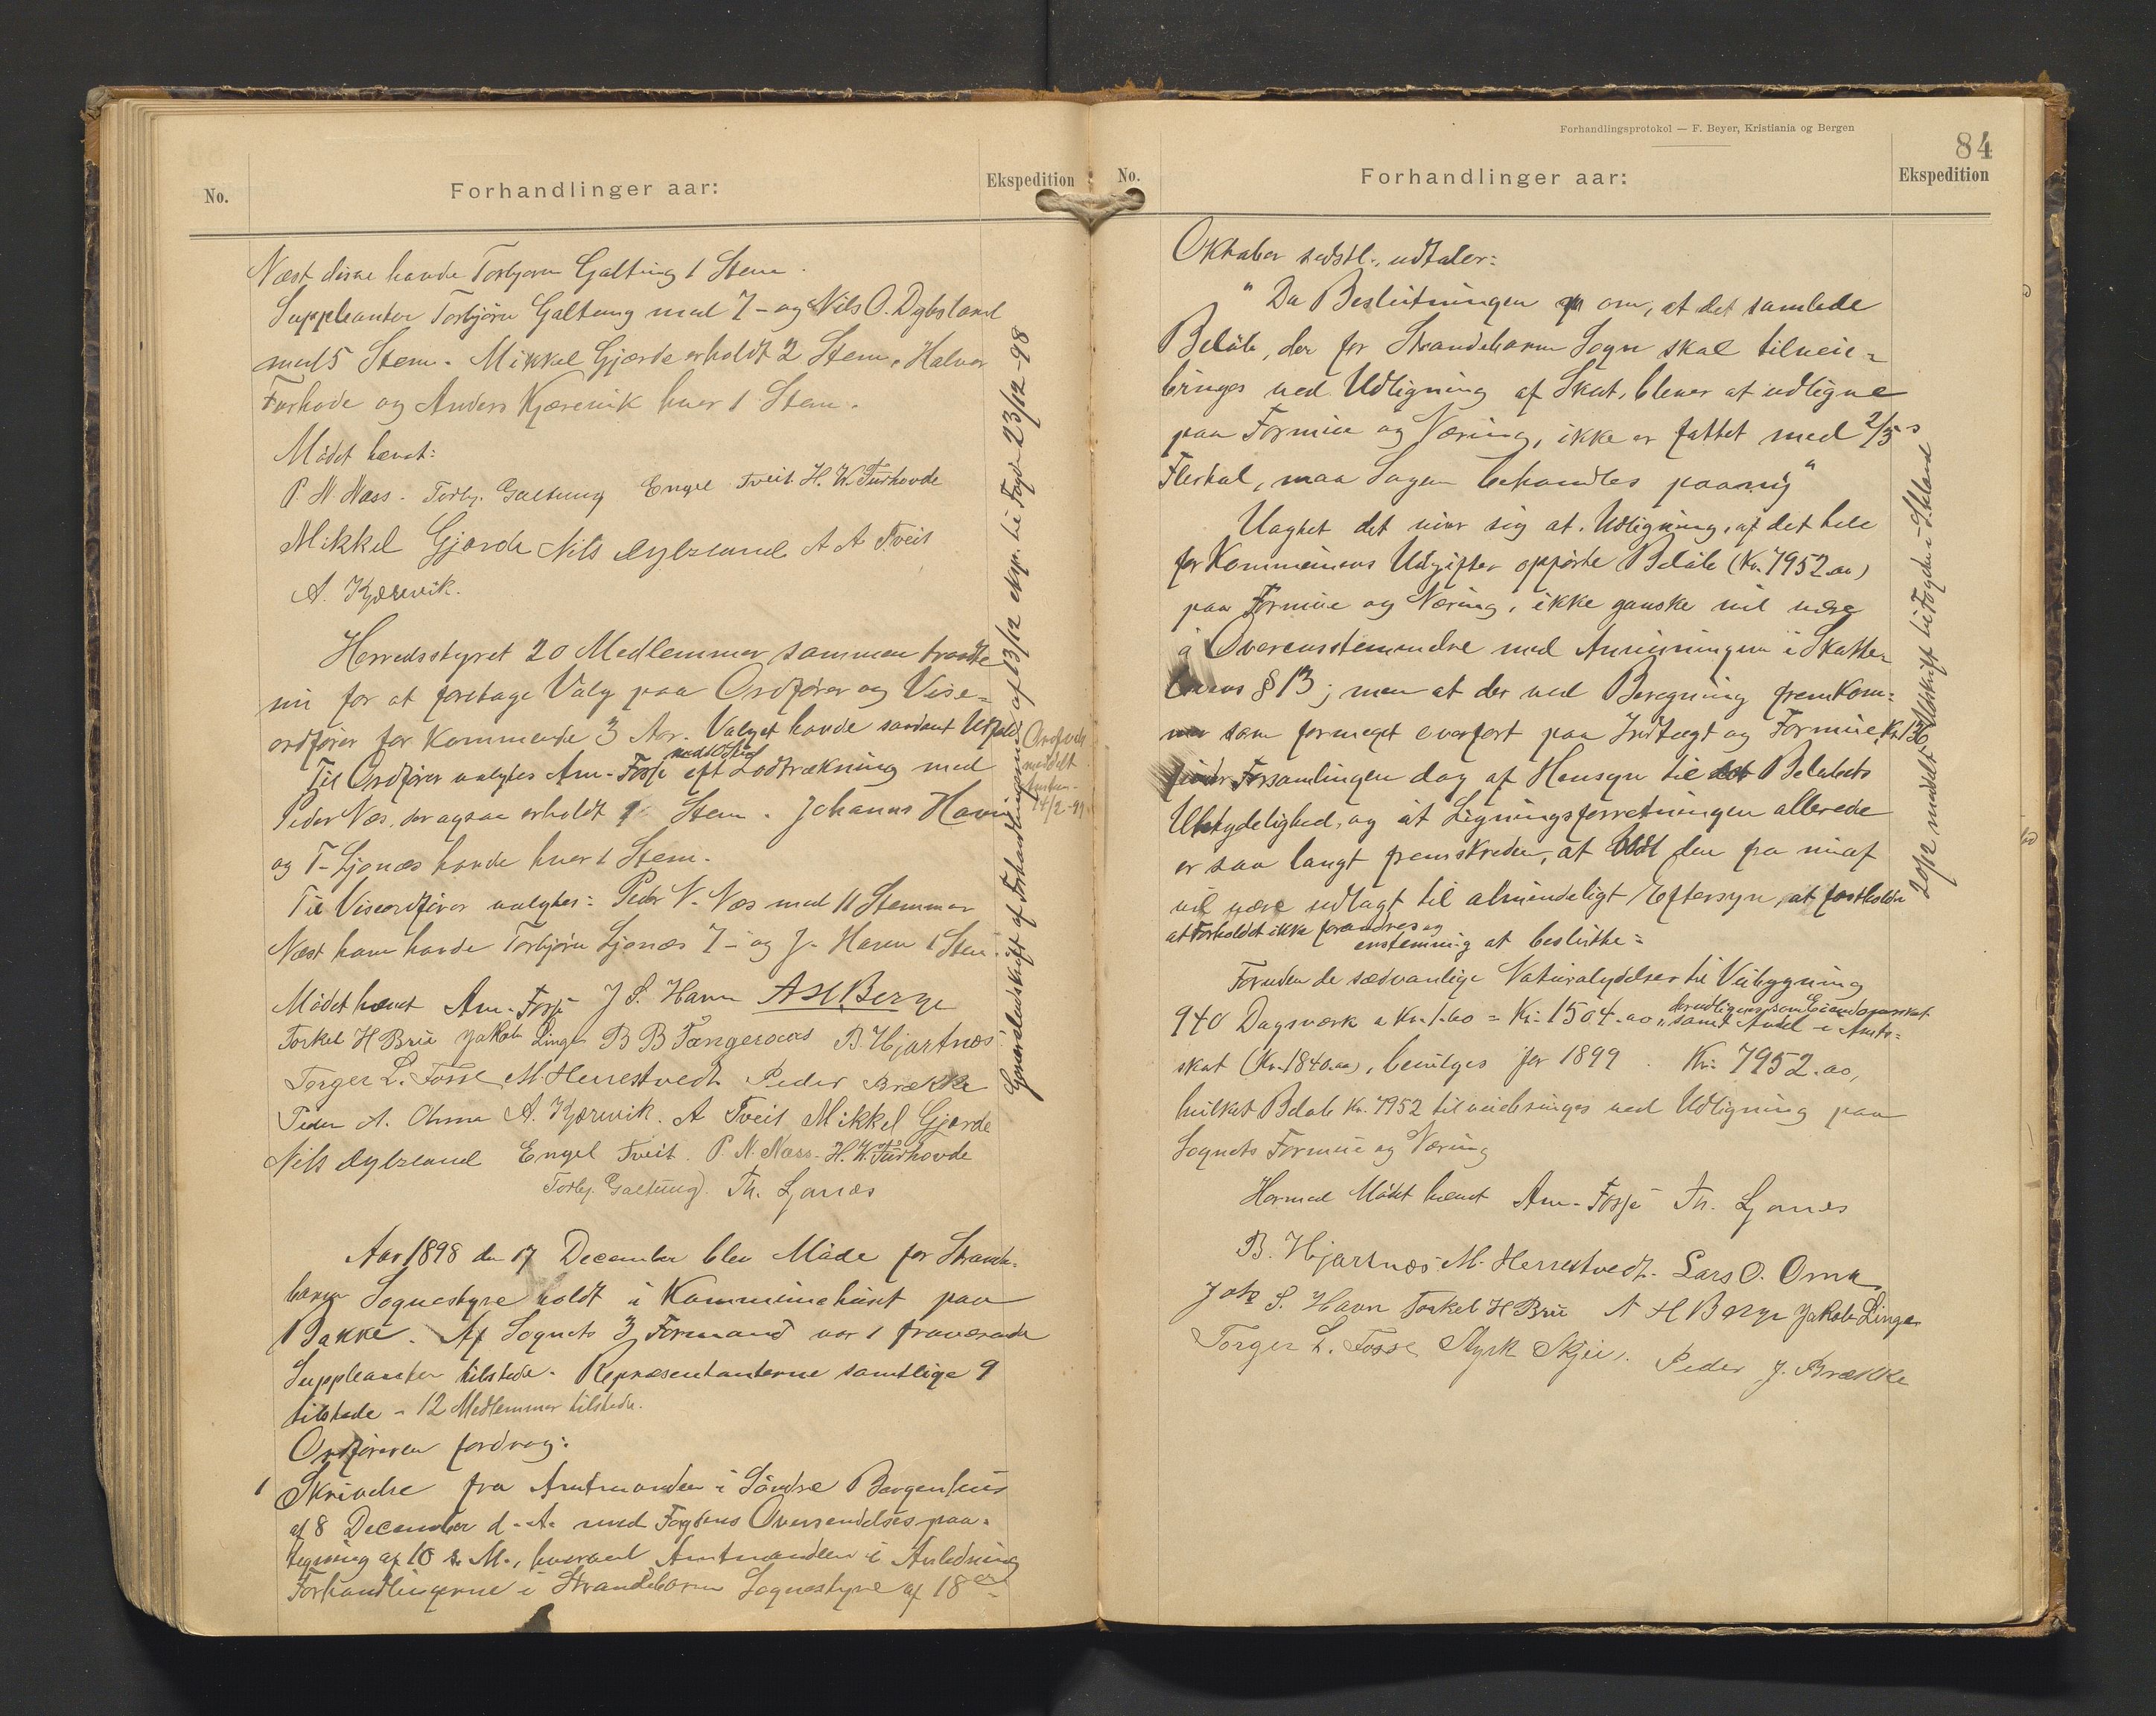 No.
Forhandlinger aar:
Ekspedition
Næst disse havde Torbjørn Galtung 1 Stem.
Suppleanter Torbjørn Galtung med 7 - og Nils O. Dybsland
med 5 Stem. Mikkel Gjærde erholdt 2 Stem, Halvor
Furhovde og Anders Kjærevik hver 1 Stem.
Mödet hævet:
P. N. Næss. Torbj. Galtung Engel Tveit H. W. Furhovde
Mikkel Gjærde Nils Dybsland A A Tveit
A. Kjærevik.
Herredsstyret 20 Medlemmer sammentraadte
nu for at foretage Valg paa Ordfører og Vise-
ordfører for kommende 3 Aar. Valget havde saadant Udfald
Til Ordfører valgtes Am. Fosse med 9 Stem eft Lodtrækning med
Peder Næs, der ogsaa erholdt 9 Stem. Johannes Havn
og T. Ljonæs havde hver 1 Stem.
Til Viseordfører valgtes: Peder N. Næs med 11 Stemmer
Næst ham havde Torbjörn Ljonæs 7 - og J. Havn 1 Stem.
Mödet hævet Am. Fosse J S. Havn A H Berge
Torkel H Bru Jakob Linge B B Tangeraas B. Hjartnæs
Torger L. Fosse M. Herrestvedt Peder Brække
Peder A. Omme A. Kjærevik. A Tveit Mikkel Gjærde
Nils Dybsland Engel Tveit. P. N. Næss. H. W. Furhovde
Torbj. Galtung. Th. Ljonæs
Ordførervalg
meddelt
Amtm.
14/2-99
Generaludskrift af Forhandlingerne af 13/12 eksp. til Fogden 23/12-98
Aar 1898 den 17 December blev Möde for Strande-
barm Sognestyre holdt i Kommunehuset paa
Bakke. Af Sognets 3 Formænd var 1 fraværende
Suppleanten tilstede. Repræsentanterne samtlige 9
tilstede - 12 Medlemmer tilstede.
Ordføreren fordrog:
1 Skrivelse fra Amtmanden i Söndre Bergenhus
af 8 December d. A. med Fogdens Oversendelsespaa-
tegning af 10 s. M., hvorved Amtmanden i Anledning
Forhandlingerne i Strandebarm Sognestyre af 18de
Forhandlingsprotokol — F. Beyer, Kristiania og Bergen
84
No.
Forhandlinger aar:
Ekspedition
Oktober sidstl., udtaler:
"Da Beslutningen om, at det samlede
Belöb, der for Strandebarm Sogn skal tilveie-
bringes ved Udligning af Skat, bliver at udligne
paa Formue og Næring, ikke er fattet med 2/3s
Flertal, maa Sagen behandles paany"
Uagtet det viser sig at Udligning af det hele
for Kommunens Udgifter opförte Belöb (Kr. 7952.00)
paa Formue og Næring, ikke ganske vil være
i Overensstemmelse med Anvisningen i Skatte-
lovens § 13; men at der ved Beregning fremkom-
mer som formeget overfort paa Indtægt og Formue Kr. 136
finder Forsamlingen dog af Hensyn til Belobets
Ubetydelighed, og at Ligningsforretningen allerede
er saa langt fremskreden, at den fra nu af
vil være udlagt til almindeligt Eftersyn, at fastholde
at Forholdet ikke forandres og
enstemmig at beslutte:
Foruden de sædvanlige Naturalydelser til Veibygning
940 Dagsværk a Kr. 1.60 = Kr. 1504.00, der udlignes som Eiendomsskat samt Andel i Amts-
skat (Kr. 1840.00), bevilges for 1899 Kr. 7952.00,
hvilket Belöb Kr. 7952 tilveiebringes ved Udligning paa
Sognets Formue og Næring
Hermed Mödet hævet Am. Fosse Th. Ljonæs
B. Hjartnæs M. Herrestvedt. Lars O. Omme
Johs S. Havn Torkel H Bru A H Berge Jakob Linge
Torger L. Fosse Styrk Skjei. Peder J. Brække
20/12 meddelt Udskrift til Fogden i S.Hland